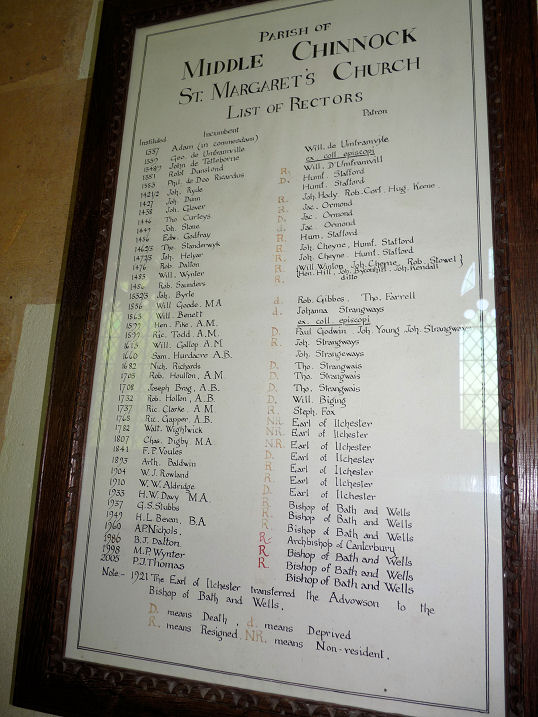 PARISH OF
MIDDLE CHINNOCK
ST. MARGARET'S CHURCH
LIST OF RECTORS
Instituted Incumbent Patron
1337 Adam (in commendam) Will. de Umframvile
1339 Geo. de Umframville ex. coll. episcopi
John de Tetteborne R. Will. D'Umframvill
1381 Robt Dunslond D. Humf. Stafford
1383 Phil. de Doo Ricardus Humf. Stafford
1421/2 Joh. Ryde R. Joh. Hody. Rob. Corf. Hug. Keene.
1427 Joh. Dunn R. Jac. Ormond
1438 Joh. Glover D. Jac. Ormond
1446 Tho. Curleys d. Jac. Ormond
1449 Joh. Stone R. Hum. Stafford
1456 Edw. Godfray R. Joh. Cheyne, Humf. Stafford
1462/3 Tho. Slanderwyk R. Joh. Cheyne. Humf. Stafford
1472/3 Joh. Helyar R. {Will Winlon, Joh. Cheyne, Rob. Stowel}
1476 Rob. Dallon R. {Hen. Hill, Joh. Byconhill, Joh. Kendall
1483 Will. Wynter ditto
1486 Rob. Saunders
1532/3 Joh. Byrle d. Rob. Gibbos, Tho. Farrell
1556 Will Goode. M.A d. Johanna Strangways
1563 Will. Benett ex. coll. episcopi
Hen. Pike. A.M. D. Paul Godwin. Joh. Young Joh. Strangwey
1599 Ric. Todd. A.M. R. Joh. Strangways
1615 Will. Gallop A.M Joh. Strangeways
1660 Sam. Hurdacre A.B. D. Tho. Strangwais
1682 Nich. Richards D. Tho. Strangwais
1705 Rob. Houlton, A.M. D. Tho. Strangwais
1708 Joseph Brag, A.B. D. Will. Biging
1732 Rob. Hollen, A.B R. Steph. Fox
1737 Ric. Clarke, A.M N.R. Earl of Ilchester
1768 Ric. Gapper. A.B. N.R. Earl of Ilchester
1782 Walt. Wightwick N.R. Earl of Ilchester
1807 Chas. Digby M.A. D. Earl of Ilchester
1841 F. P. Voules R Earl of Ilchester
1893 Arth. Baldwin R. Earl of Ilchester
1904 W. J. Rowland D. Earl of Ilchester
1910 W. W. Aldridge R. Bishop of Bath and Wells
1933 H. W. Davy M.A. R. Bishop of Bath and Wells
1937 G. S. Stubbs R. Bishop of Bath and Wells
1949 H. L. Bevan, B.A R. Archbishop of Canterbury
1960 A.P. Nichols, R. Bishop of Bath and Wells
1986 B. J. Dalton R. Bishop of Bath and Wells
1998 M. P. Wynter Bishop of Bath and Wells
2005 P. J. Thomas
Note:- 1921 The Earl of Ilchester transferred the Advowson to the
Bishop of Bath and Wells.
D. means Death, d. means Deprived
R. means Resigned, N.R. means Non-resident.